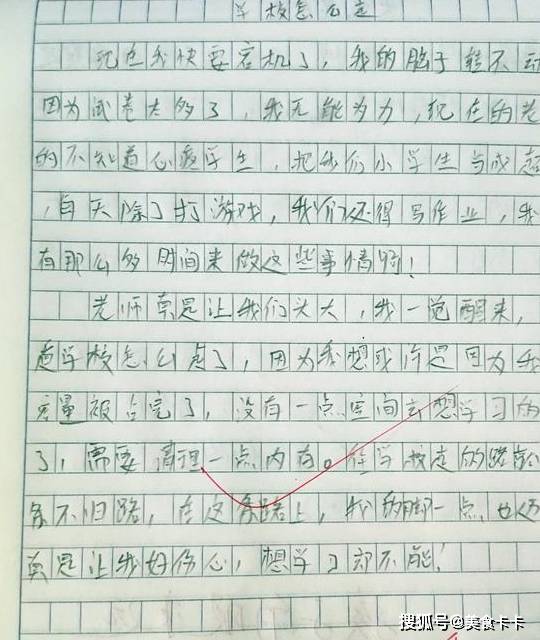 学校怎么走
现在我快要宕机了，我的脑子转不动
因为试卷太多了，我无能为力，现在的老
的不知道心疼学生，把我们小学生当成超
，白天除了打游戏，我们还得写作业，我
有那么多时间来做这些事情啊！
老师真是让我们头大，我一觉醒来，
道学校怎么走了，因为我想或许是因为我
容量被占完了，没有一点空间去想学习的
了，需要清理一点内存。在学校走的路
条不归路，在这条路上，我的脚一点也
真是让我好伤心，想学习都不能！
搜狐号@美食卡卡